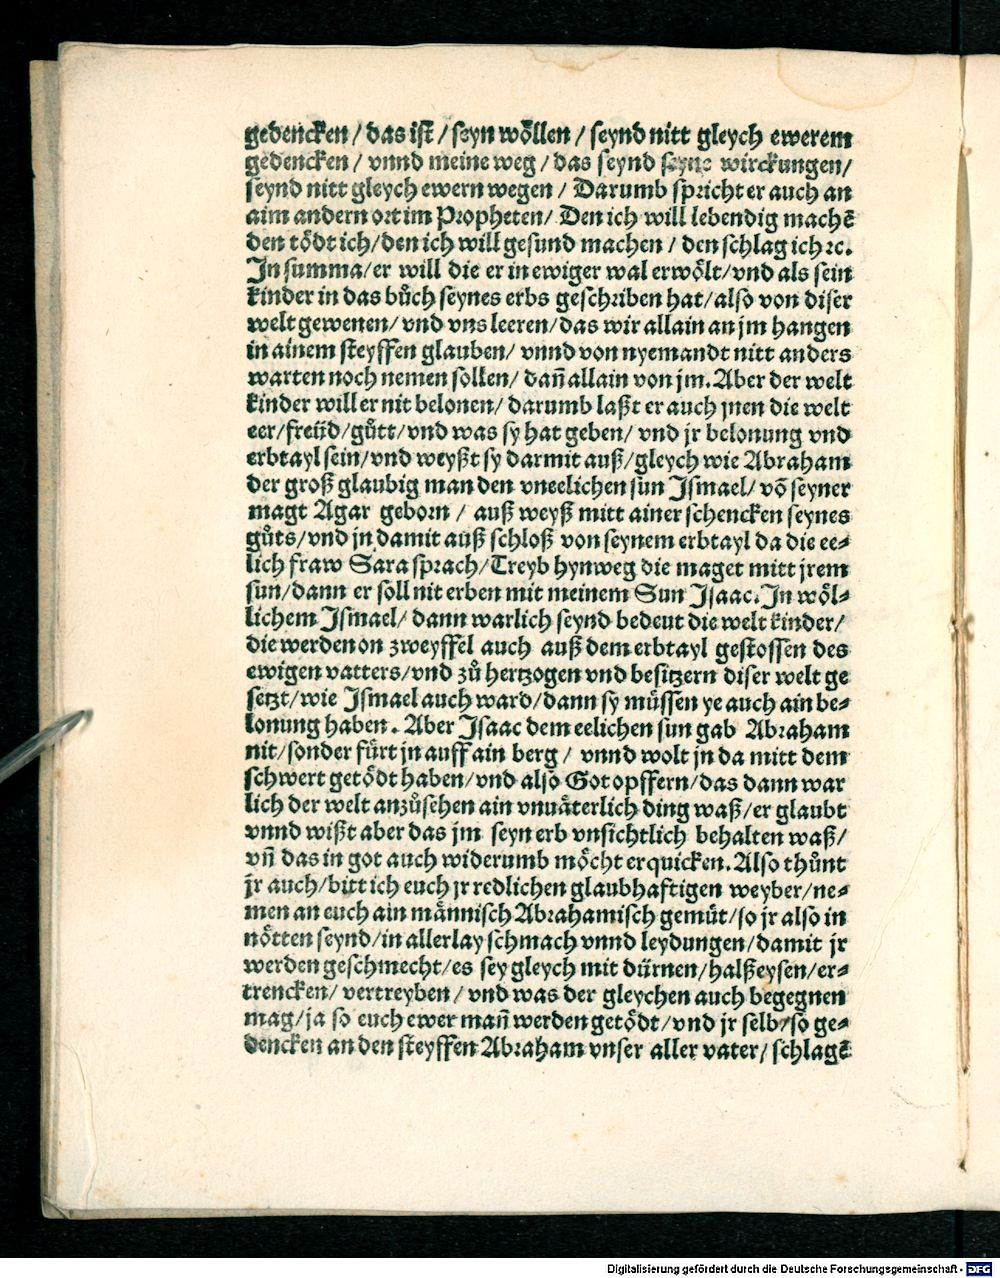 gedencken / das ist / seyn wo̊llen / seynd nitt gleych ewerem
gedencken / vnnd meine weg / das seynd seyne wirckungen /
seynd nitt gleych ewern wegen / Darumb spricht er auch an
aim andern ort im Propheten / Den ich will lebendig machē
den toͤdt ich / den ich will gesund machen / den schlag ich ꝛc.
In summa / er will die er in ewiger wal erwoͤlt / vnd als sein
kinder in das bůch seynes erbs geschriben hat / also von diser
welt gewenen / vnd vns leeren / das wir allain an jm hangen
in ainem steyffen glauben / vnnd von nyemandt nitt anders
warten noch nemen sollen / dañ allain von jm. Aber der welt
kinder will er nit belonen / darumb laßt er auch jnen die welt
eer / freüd / gůtt / vnd was sy hat geben / vnd jr belonung vnd
erbtayl sein / vnd weyßt sy darmit auß / gleych wie Abraham
der groß glaubig man den vneelichen sun Ismael / võ seyner
magt Agar geborn / auß weyß mitt ainer schencken seynes
gůts / vnd jn damit auß schloß von seynem erbtayl da die ee⸗
lich fraw Sara sprach / Treyb hynweg die maget mitt jrem
sun / dann er soll nit erben mit meinem Sun Isaac. In woͤl⸗
lichem Ismael / dann warlich seynd bedeut die welt kinder /
die werden on zweyffel auch auß dem erbtayl gestossen des
ewigen vatters / vnd zů hertzogen vnd besitzern diser welt ge
setzt / wie Ismael auch ward / dann sy muͤssen ye auch ain be⸗
lonung haben. Aber Isaac dem eelichen sun gab Abraham
nit / sonder fuͤrt jn auff ain berg / vnnd wolt jn da mitt dem
schwert getoͤdt haben / vnd also Got opffern / das dann war
lich der welt anzůsehen ain vnuaͤterlich ding waß / er glaubt
vnnd wißt aber das jm seyn erb vnsichtlich behalten waß /
vñ das in got auch widerumb moͤcht erquicken. Also thůnt
jr auch / bitt ich euch jr redlichen glaubhaftigen weyber / ne⸗
men an euch ain maͤnnisch Abrahamisch gemuͤt / so jr also in
noͤtten seynd / in allerlay schmach vnnd leydungen / damit jr
werden geschmecht / es sey gleych mit duͤrnen / halßeysen / er⸗
trencken / vertreyben / vnd was der gleychen auch begegnen
mag / ja so euch ewer mañ werden getoͤdt / vnd jr selb / so ge⸗
dencken an den steyffen Abraham vnser aller vater / schlagē
Digitalisierung gefördert durch die Deutsche Forschungsgemeinschaft - DFG